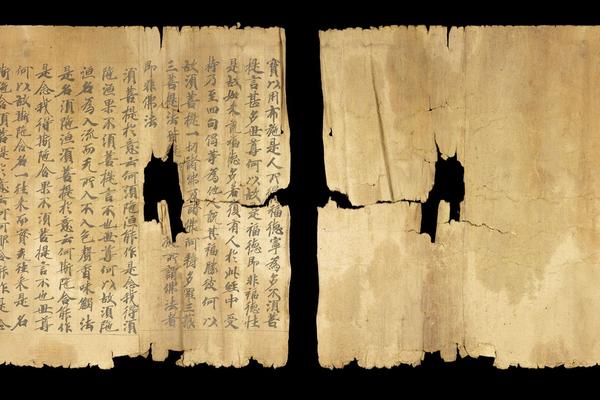 寶以用布施是人所得福德寧為多不須菩
提言甚多世尊何以故是福德即非福德性
是故如來說福德多若復有人於此經中受
持乃至四句偈等為他人說其福勝彼何以
故須菩提一切諸佛及諸佛阿耨多羅三藐
三菩提法皆所謂佛法者
即非佛法
須菩提於意云何須陀洹能作是念我得須
陀洹果不須菩提言不也世尊何以故須陀
洹名為入流而无所入不入色聲香味觸法
是名須陀洹須菩提於意云何斯陀含能作
是念我得斯陀含果不須菩提言不也世尊
何以故斯陀含名一往來而實无往來是名
斯陀含須菩提於意云何阿那含能作是念